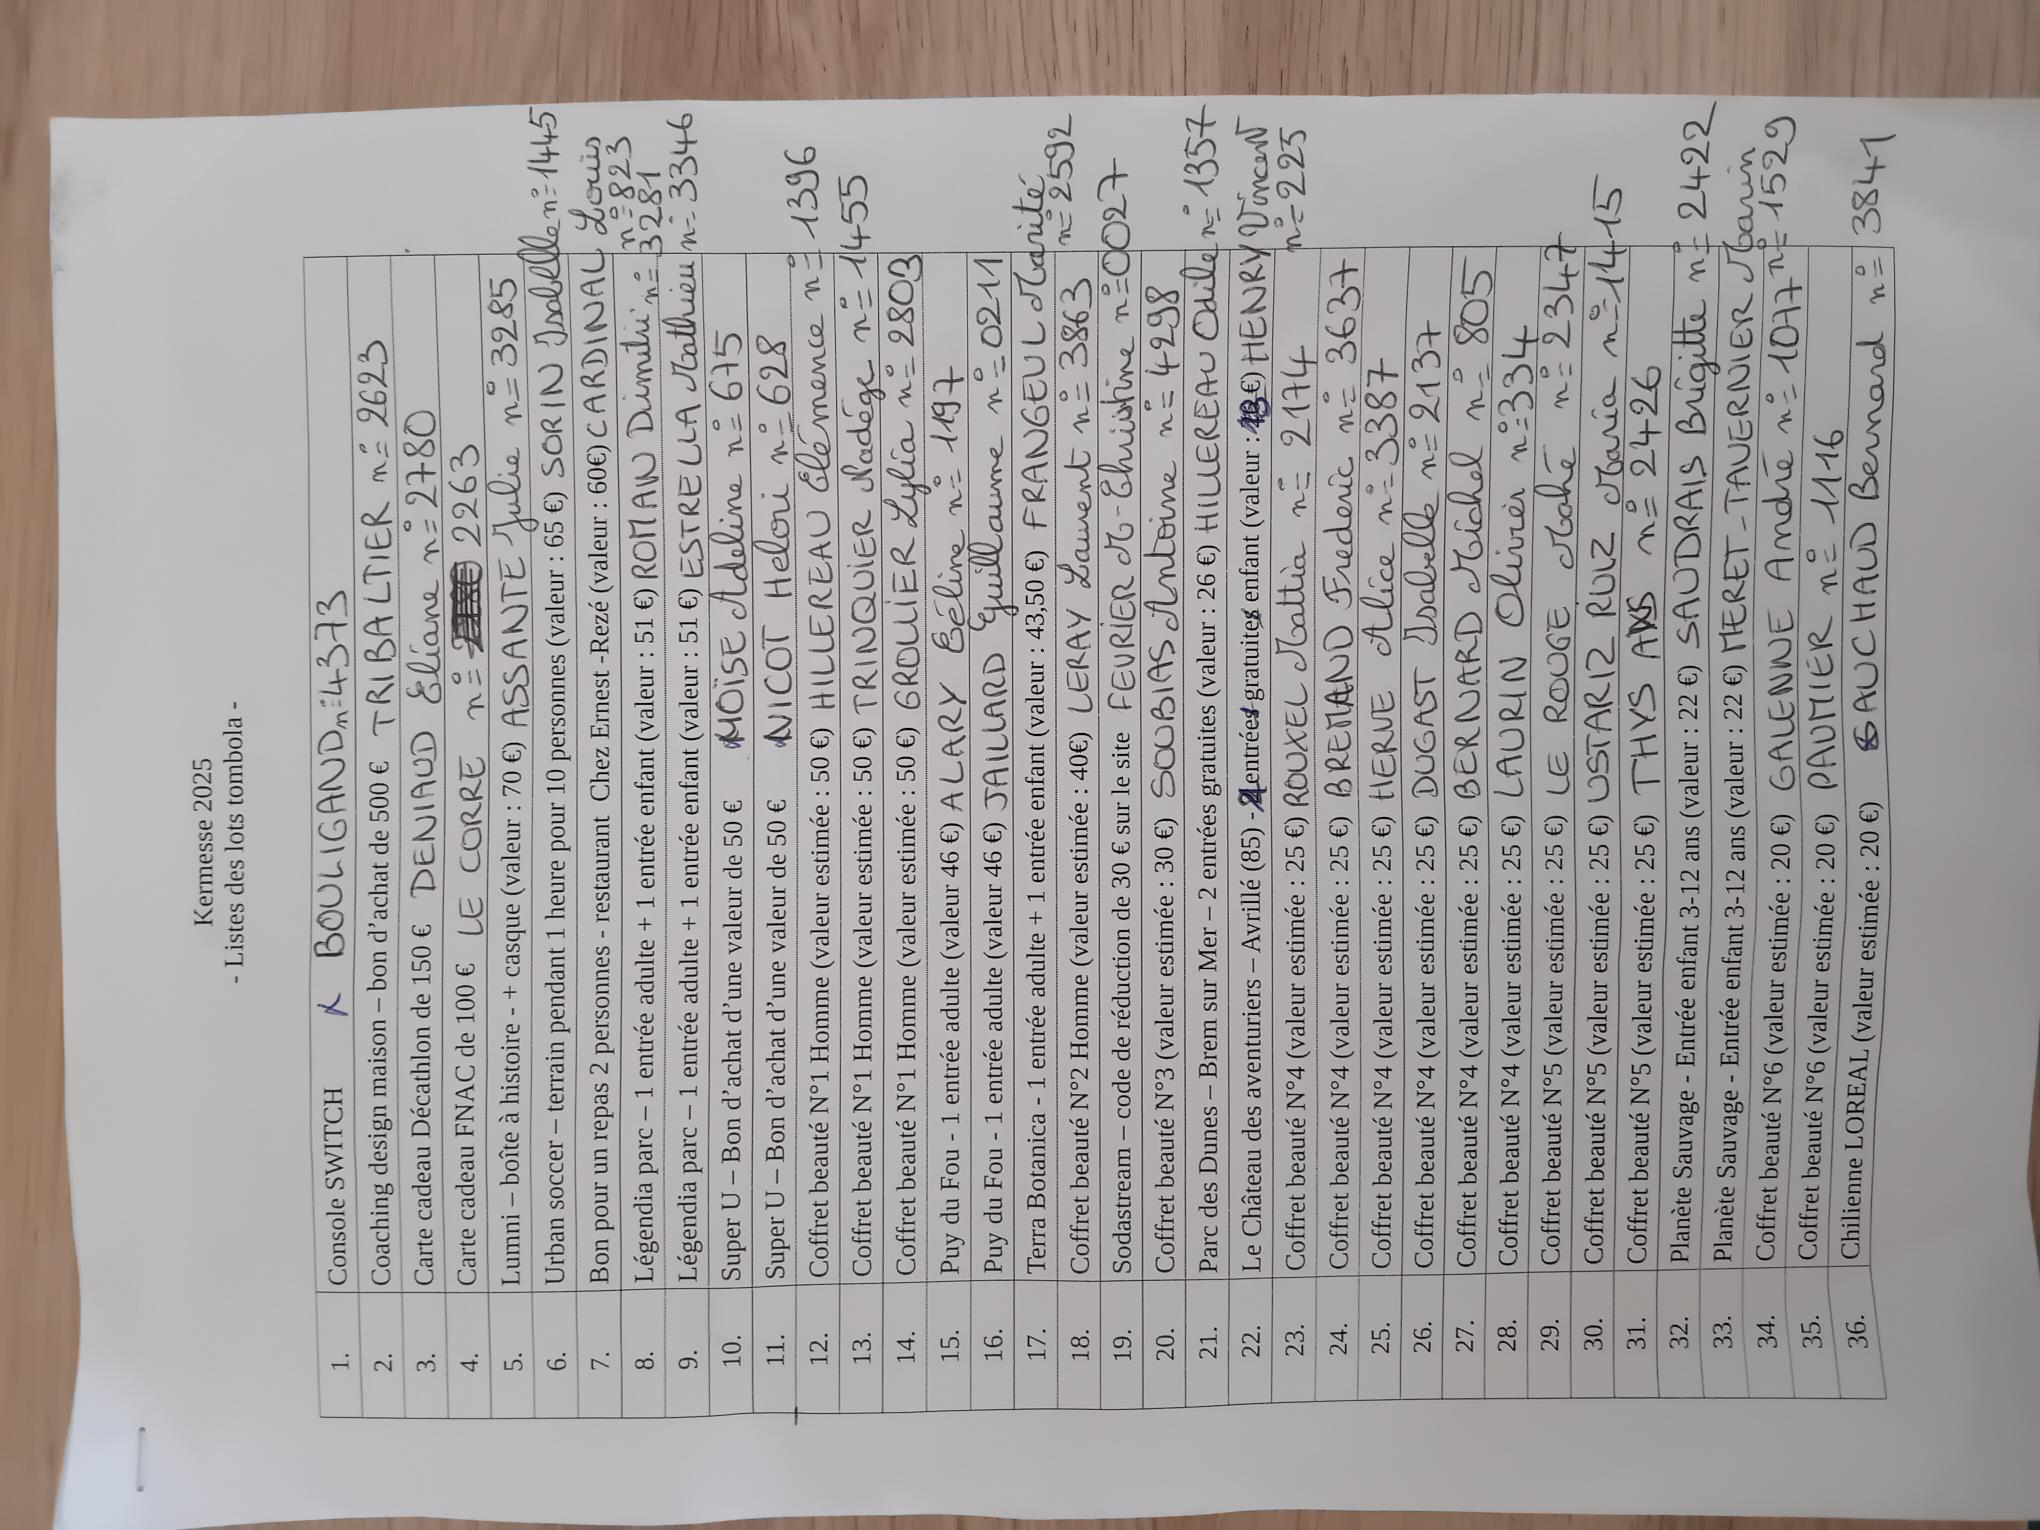 Kermesse 2025
- Listes des lots tombola -
1. Console SWITCH BOULIGAND n° 4373
2. Coaching design maison – bon d'achat de 500 € TRIBALTIER n° 2623
3. Carte cadeau Décathlon de 150 € DENIAUD Eliane n° 2780
4. Carte cadeau FNAC de 100 € LE CORRE n° 2263
5. Lumni – boîte à histoire - + casque (valeur : 70 €) ASSANTE Julie n° 3285
6. Urban soccer – terrain pendant 1 heure pour 10 personnes (valeur : 65 €) SORIN Isabelle n° 1445
7. Bon pour un repas 2 personnes - restaurant Chez Ernest -Rezé (valeur : 60€) CARDINAL Louis n° 823
8. Légendia parc – 1 entrée adulte + 1 entrée enfant (valeur : 51 €) ROMAN Dimitri n° 3281
9. Légendia parc – 1 entrée adulte + 1 entrée enfant (valeur : 51 €) ESTRELLA Mathieu n° 3346
10. Super U – Bon d'achat d'une valeur de 50 € MOÏSE Adeline n° 675
11. Super U – Bon d'achat d'une valeur de 50 € NICOT Helori n° 628
12. Coffret beauté N°1 Homme (valeur estimée : 50 €) HILLEREAU Clémence n° 1396
13. Coffret beauté N°1 Homme (valeur estimée : 50 €) TRINQUIER Nadége n° 1455
14. Coffret beauté N°1 Homme (valeur estimée : 50 €) GROLLIER Lylia n° 2803
15. Puy du Fou - 1 entrée adulte (valeur 46 €) ALARY Céline n° 1197
16. Puy du Fou - 1 entrée adulte (valeur 46 €) JAILLARD Guillaume n° 0211
17. Terra Botanica - 1 entrée adulte + 1 entrée enfant (valeur : 43,50 €) FRANGEUL Marité n° 2592
18. Coffret beauté N°2 Homme (valeur estimée : 40€) LERAY Laurent n° 3863
19. Sodastream – code de réduction de 30 € sur le site FEVRIER M-Christine n° 0027
20. Coffret beauté N°3 (valeur estimée : 30 €) SOUBIAS Antoine n° 4298
21. Parc des Dunes – Brem sur Mer – 2 entrées gratuites (valeur : 26 €) HILLEREAU Odile n° 1357
22. Le Château des aventuriers – Avrillé (85) - entrée gratuite enfant (valeur : €) HENRY Vincent n° 225
23. Coffret beauté N°4 (valeur estimée : 25 €) ROUXEL Mattia n° 2174
24. Coffret beauté N°4 (valeur estimée : 25 €) BREMAND Frederic n° 3637
25. Coffret beauté N°4 (valeur estimée : 25 €) HERVE Alice n° 3387
26. Coffret beauté N°4 (valeur estimée : 25 €) DUGAST Isabelle n° 2137
27. Coffret beauté N°4 (valeur estimée : 25 €) BERNARD Michel n° 805
28. Coffret beauté N°4 (valeur estimée : 25 €) LAURIN Olivier n° 334
29. Coffret beauté N°5 (valeur estimée : 25 €) LE ROUGE Mahé n° 2347
30. Coffret beauté N°5 (valeur estimée : 25 €) USTARIZ RUIZ Maria n° 1415
31. Coffret beauté N°5 (valeur estimée : 25 €) THYS n° 2426
32. Planète Sauvage - Entrée enfant 3-12 ans (valeur : 22 €) SAUDRAIS Brigitte n° 2422
33. Planète Sauvage - Entrée enfant 3-12 ans (valeur : 22 €) MERET-TAVERNIER Marin n° 1529
34. Coffret beauté N°6 (valeur estimée : 20 €) GALENNE André n° 1077
35. Coffret beauté N°6 (valeur estimée : 20 €) PAUMIER n° 1116
36. Chilienne LOREAL (valeur estimée : 20 €) GAUCHAUD Bernard n° 3841